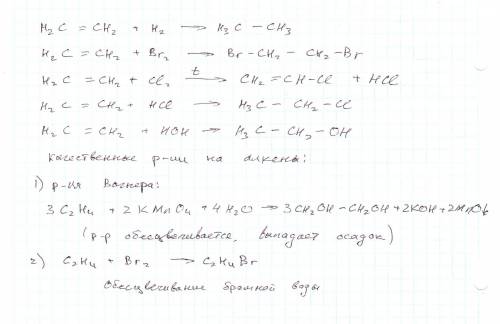 H₂C = CH₂ + H₂ → H₃C – CH₃
H₂C = CH₂ + Br₂ → Br-CH₂ – CH₂-Br
H₂C = CH₂ + Cl₂ –t→ CH₂=CH-Cl + HCl
H₂C = CH₂ + HCl → H₃C – CH₂-Cl
H₂C = CH₂ + HOH → H₃C – CH₂-OH
качественные р-ии на алкены:
1) р-ия Вагнера:
3 C₂H₄ + 2 KMnO₄ + 4H₂O → 3CH₂OH – CH₂OH + 2KOH + 2MnO₂
(р-р обесцвечивается, выпадает осадок)
2) C₂H₄ + Br₂ → C₂H₄Br
Обесцвечивание бромной воды